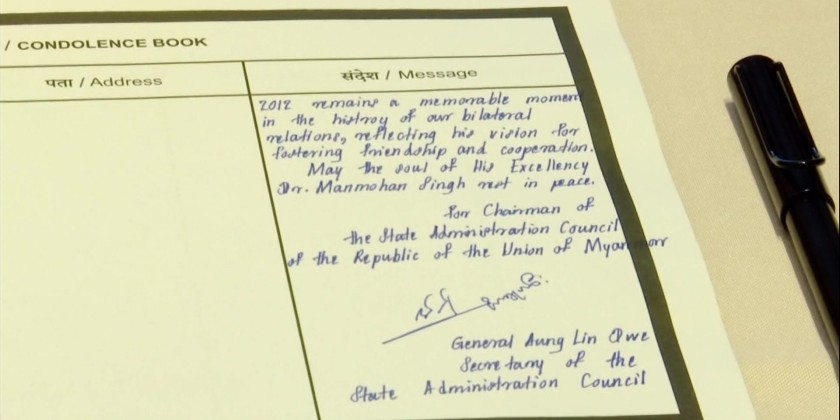 / CONDOLENCE BOOK
पता / Address
संदेश / Message
2012 remains a memorable moment
in the histroy of our bilateral
relations, reflecting his vision for
fostering friendship and cooperation.
May the soul of His Excellency
Dr. Manmohan Singh rest in peace.
for Chairman of
the State Administration Council
of the Republic of the Union of Myanmar
General Aung Lin Dwe
Secretary of the
State Administration Council